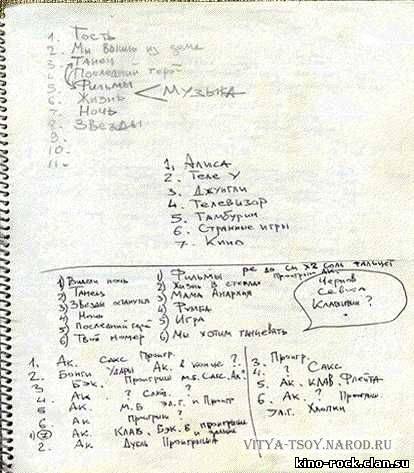 1. Гость
2. Мы вышли из дома
3. Танец
4. Последний герой
5. Фильмы
6. Жизнь
7. Ночь
8. Звезды
9.
10.
11.
Музыка
1. Алиса
2. Теле У
3. Джунгли
4. Телевизор
5. Тамбурин
6. Странные игры
7. Кино
1) Видели ночь
2) Танец
3) Звезды останутся
4) Ночь
5) Последний герой
6) Твой номер
1) Фильмы
2) Жизнь в стеклах
3) Мама Анархия
4) Румба
5) Игра
6) Мы хотим танцевать
ре до си х2 соль фальцет
проигрыш Ак.
Чернов
Севка
Клавиши?
1. Ак. Сакс Проигр.
2. Бонги Удары Ак. в конце?
3. Бэк. Проигрыш м.б. Сакс. Ак?
4. Ак. ? Сакс. ?
5. Ак. М.Б. Эл.Г. и Проигр
6. Ак Проигрыш ?
Ак. Клав. Бэк. в проигрыше
2. Ак. Дуэль Проигрыша
3. Проигр.
4. ? Сакс
5. Ак. Клав. Флейта
6. Ак. ? Проигрыш
Эл.Г. Хлопки
VITYA-TSOY.NAROD.RU
kino-rock.clan.su